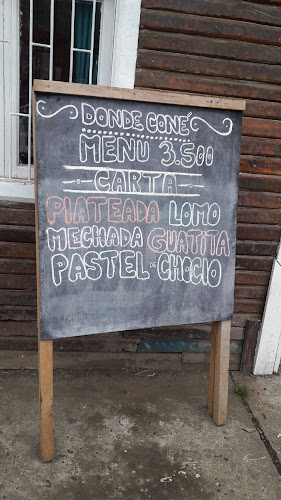 DONDE CONÉ
MENU 3.500
CARTA
PLATEADA LOMO
MECHADA GUATITA
PASTEL DE CHOCLO